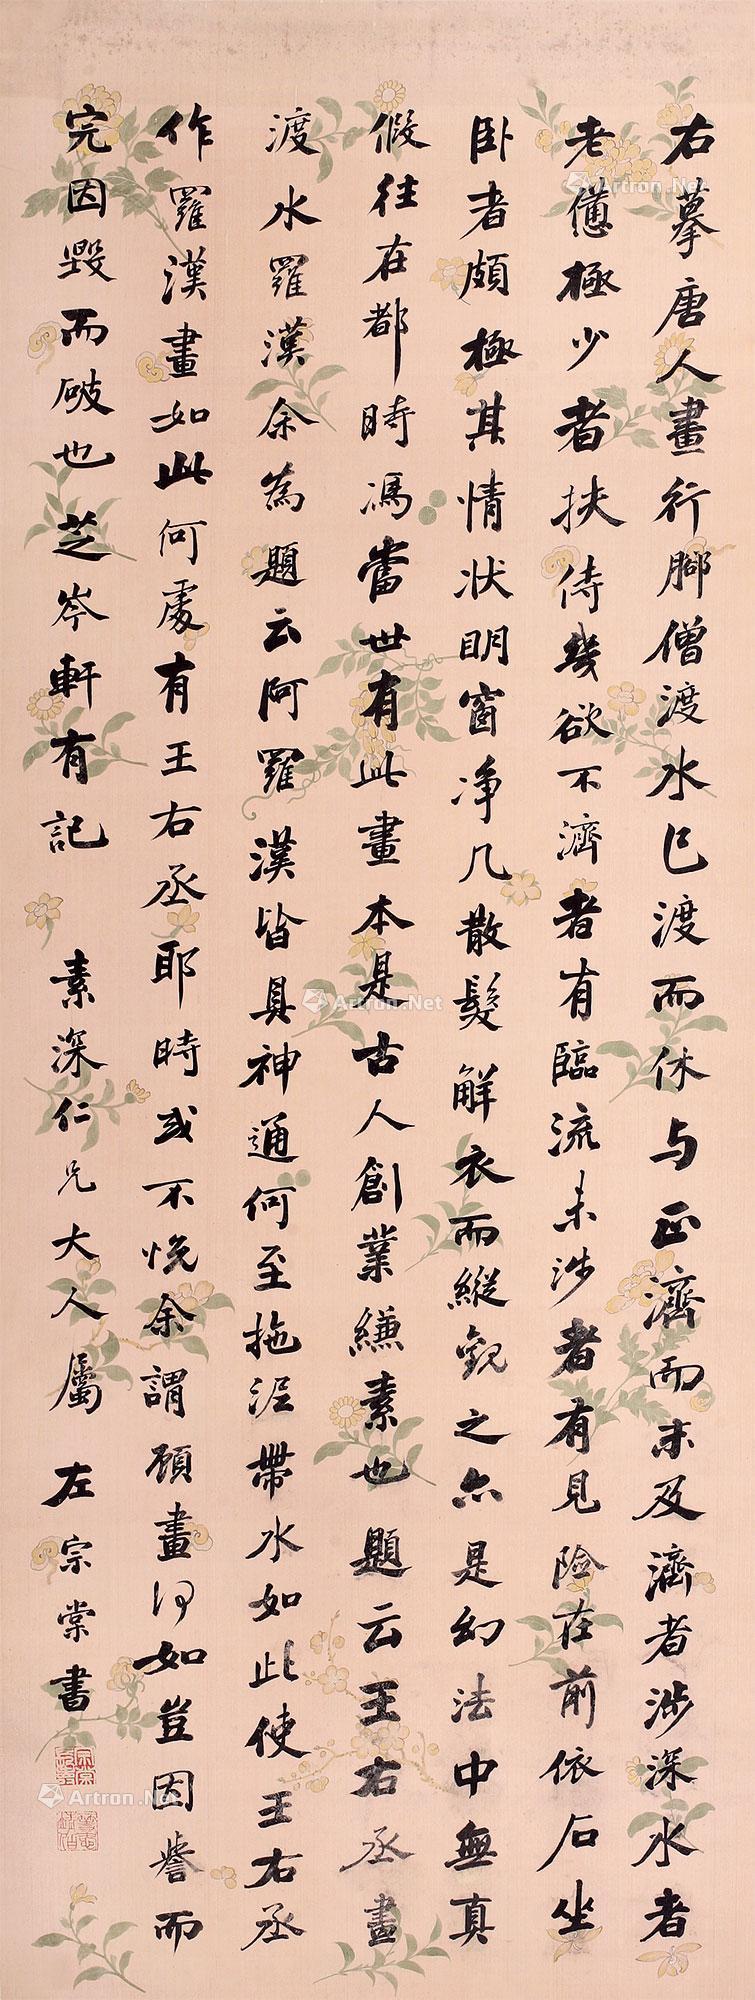 右摹唐人畫行腳僧渡水已渡而休与正濟而未及濟者涉深水者
老憊極少者扶侍幾欲不濟者有臨流未涉者有見險在前依石坐
卧者頗極其情狀明窗净几散髮解衣而縱觀之亦是幻法中無真
假往在都時馮當世有此畫本是古人創業縑素也題云王右丞畫
渡水羅漢余為題云阿羅漢皆具神通何至拖泥帶水如此使王右丞
作羅漢畫如此何處有王右丞耶時或不悅余謂顧畫何如豈因譽而
完因毀而破也芝岑軒有記 素深仁兄大人屬 左宗棠書
Artron.Net
Artron.Net
Artron.Net